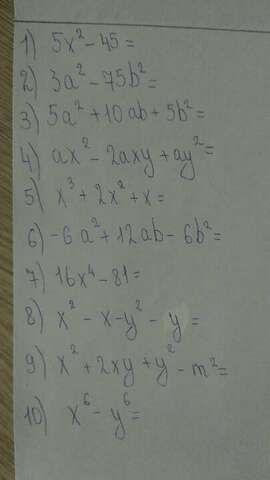 1) 5x² - 45 =
2) 3a² - 75b² =
3) 5a² + 10ab + 5b² =
4) ax² - 2axy + ay² =
5) x³ + 2x² + x =
6) -6a² + 12ab - 6b² =
7) 16x⁴ - 81 =
8) x² - x - y² - y =
9) x² + 2xy + y² - m² =
10) x⁶ - y⁶ =